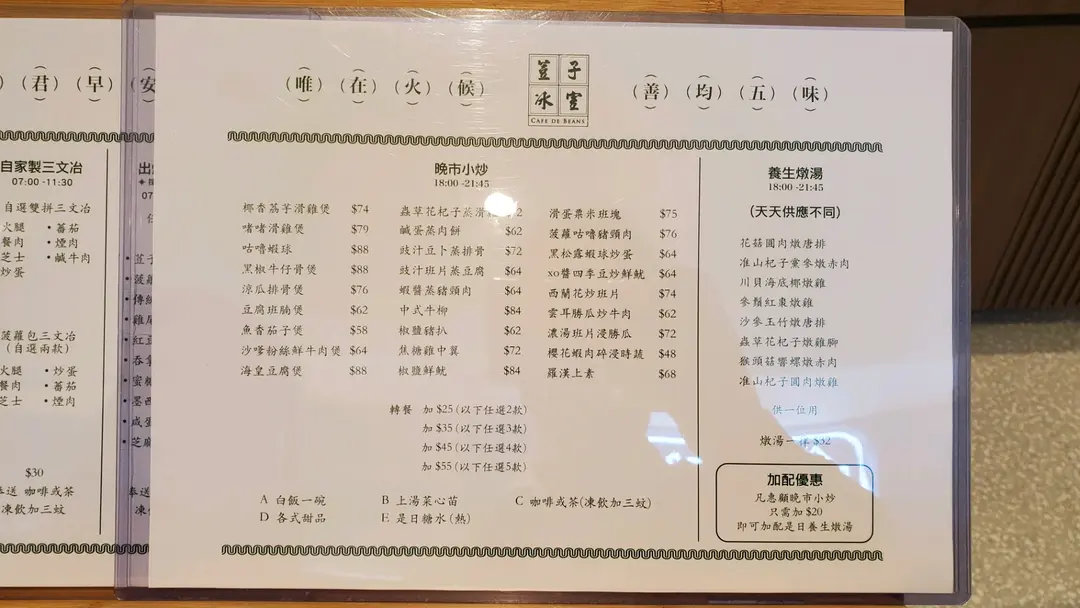 (君)(早)(安
自家製三文冶
07:00 -11:30
自選雙拼三文冶
火腿 •蕃茄
餐肉 •煙肉
芝士 •鹹牛肉
炒蛋
菠蘿包三文冶
(自選兩款)
火腿 •炒蛋
餐肉 •蕃茄
芝士 •煙肉
$30
奉送 咖啡或茶
凍飲加三蚊
(唯)(在)(火)(候)
荳子
冰室
CAFE DE BEANS
(善)(均)(五)(味)
晚市小炒
18:00 -21:45
椰香荔芋滑雞煲 $74
啫啫滑雞煲 $79
咕嚕蝦球 $88
黑椒牛仔骨煲 $88
涼瓜排骨煲 $76
豆腐班腩煲 $62
魚香茄子煲 $58
沙嗲粉絲鮮牛肉煲 $64
海皇豆腐煲 $88
蟲草花杞子蒸滑
鹹蛋蒸肉餅 $62
豉汁豆卜蒸排骨 $72
豉汁班片蒸豆腐 $64
蝦醬蒸豬頸肉 $64
中式牛柳 $84
椒鹽豬扒 $62
焦糖雞中翼 $72
椒鹽鮮魷 $84
滑蛋粟米班塊 $75
菠蘿咕嚕豬頸肉 $76
黑松露蝦球炒蛋 $64
xo醬四季豆炒鮮魷 $64
西蘭花炒班片 $74
雲耳勝瓜炒牛肉 $62
濃湯班片浸勝瓜 $72
櫻花蝦肉碎浸時蔬 $48
羅漢上素 $68
轉餐 加 $25 (以下任選2款)
加 $35 (以下任選3款)
加 $45 (以下任選4款)
加 $55 (以下任選5款)
A 白飯一碗 B 上湯菜心苗 C 咖啡或茶(凍飲加三蚊)
D 各式甜品 E 是日糖水(熱)
養生燉湯
18:00 -21:45
(天天供應不同)
花菇圓肉燉唐排
准山杞子黨參燉赤肉
川貝海底椰燉雞
參鬚紅棗燉雞
沙參玉竹燉唐排
蟲草花杞子燉雞腳
猴頭菇響螺燉赤肉
准山杞子圓肉燉雞
供一位用
燉湯一律 $32
加配優惠
凡惠顧晚市小炒
只需加 $20
即可加配是日養生燉湯